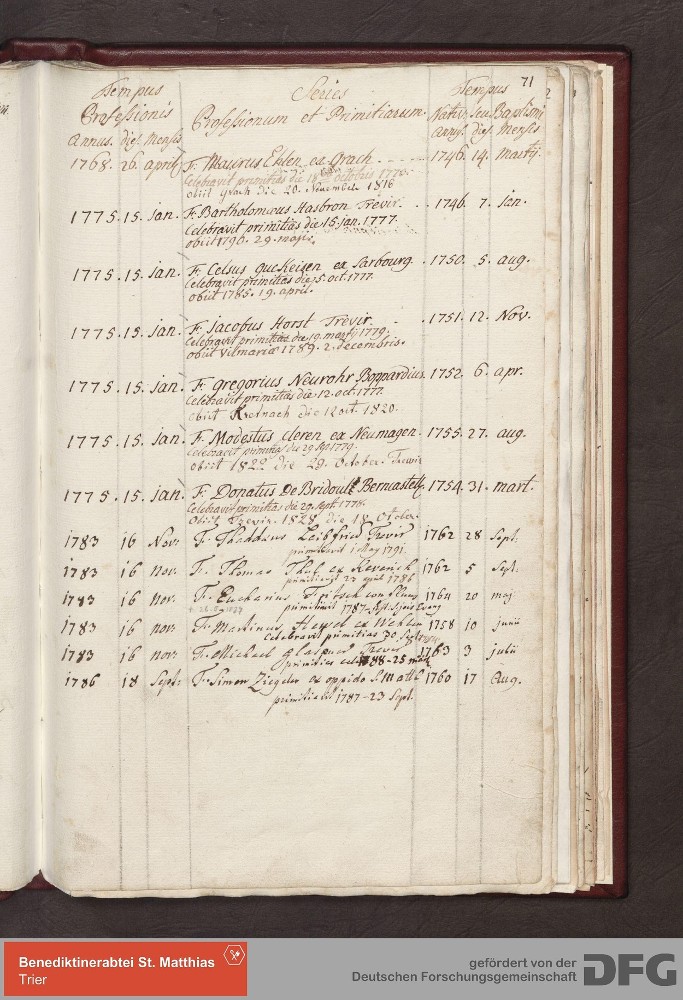 71
Tempus Series Tempus
Professionis Professionum et Primitiarum. Nativ. seu Baptismi
Annus. dies. Mensis Annus. dies. Mensis
1768. 26. april. F. Maurus Ehlen ex Grach. 1746. 14. martij.
Celebravit primitias die 18 octobris 1770.
obiit Grach die 20. Novembr. 1816
1775. 15. jan. F. Bartholomæus Hasbron Trevir. 1746. 7. jan.
Celebravit primitias die 15. jan. 1777.
obiit 1790. 29. maji.
1775. 15. jan. F. Celsus Guckeisen ex Sarbourg. 1750. 5. aug.
Celebravit primitias die 5. oct. 1777.
obiit 1785. 19. april.
1775. 15. jan. F. Jacobus Horst Trevir. 1751. 12. Nov.
Celebravit primitias die 19. martij 1779.
obiit Vilmariæ 1789. 2. decembris.
1775. 15. jan. F. Gregorius Neurohr Boppardius. 1752. 6. apr.
Celebravit primitias die 12. oct. 1777.
obiit Kretnach die 12 oct. 1820.
1775. 15. jan. F. Modestus Cleren ex Neumagen. 1755. 27. aug.
Celebravit primitias die 29 sept 1779.
obiit 1822 die 29. October. Treviris
1775. 15. jan. F. Donatus De Bridoul Berncastell. 1754. 31. mart.
Celebravit primitias die 29. sept. 1778.
Obiit Trevir. 1828 die 18 October.
1783 16 Nov. F. Thaddæus Leibfried Trevir 1762 28 Sept.
primitiavit 1 May 1791.
1783 16 nov. F. Thomas ex 1762 5 Sept.
primitiavit 23 april 1786
1783 16 nov. F. Eucharius Fritsch von 1764 20 maj
primitiavit 1787
1783 16 nov. F. Martinus ex Wehlen 1758 10 junii
Celebravit primitias 30 Sept
1783 16 nov. F. Michael Trever 1763 3 julii
primitias 1788 - 25
1786 18 Sept: F. Simon Ziegler ex oppido S. Matth. 1760 17 Aug.
primitiavit 1787 - 23 Sept.
Benediktinerabtei St. Matthias
Trier
gefördert von der
Deutschen Forschungsgemeinschaft DFG